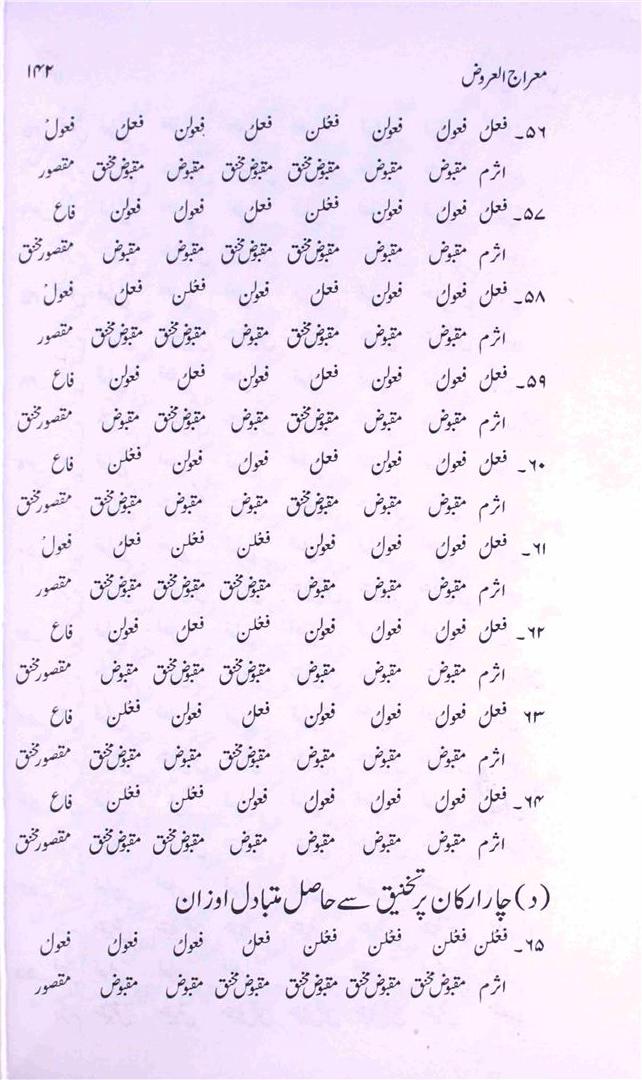 معراج العروض ۱۴۲
۵۶۔ فعل فعول فعولن فعْلن فعل فعولن فعل فعول
اثرم مقبوض مقبوض مقبوض مخنق مقبوض مخنق مقبوض مقبوض مخنق مقصور
۵۷۔ فعل فعول فعولن فعْلن فعل فعول فعولن فاع
اثرم مقبوض مقبوض مقبوض مخنق مقبوض مخنق مقبوض مقبوض مقصور مخنق
۵۸۔ فعل فعول فعولن فعل فعولن فعْلن فعل فعول
اثرم مقبوض مقبوض مقبوض مخنق مقبوض مقبوض مخنق مقبوض مخنق مقصور
۵۹۔ فعل فعول فعولن فعل فعولن فعل فعولن فاع
اثرم مقبوض مقبوض مقبوض مخنق مقبوض مقبوض مخنق مقبوض مقصور مخنق
۶۰۔ فعل فعول فعولن فعل فعول فعولن فعْلن فاع
اثرم مقبوض مقبوض مقبوض مخنق مقبوض مقبوض مقبوض مخنق مقصور مخنق
۶۱۔ فعل فعول فعول فعولن فعْلن فعْلن فعل فعول
اثرم مقبوض مقبوض مقبوض مقبوض مخنق مقبوض مخنق مقبوض مخنق مقصور
۶۲۔ فعل فعول فعول فعولن فعْلن فعل فعولن فاع
اثرم مقبوض مقبوض مقبوض مقبوض مخنق مقبوض مخنق مقبوض مقصور مخنق
۶۳ فعل فعول فعول فعولن فعل فعولن فعْلن فاع
اثرم مقبوض مقبوض مقبوض مقبوض مخنق مقبوض مقبوض مخنق مقصور مخنق
۶۴۔ فعل فعول فعول فعول فعولن فعْلن فعْلن فاع
اثرم مقبوض مقبوض مقبوض مقبوض مقبوض مخنق مقبوض مخنق مقصور مخنق
(د) چار ارکان پر تخنیق سے حاصل متبادل اوزان
۶۵۔ فعْلن فعْلن فعْلن فعْلن فعل فعول فعول فعول
اثرم مقبوض مخنق مقبوض مخنق مقبوض مخنق مقبوض مخنق مقبوض مقبوض مقصور